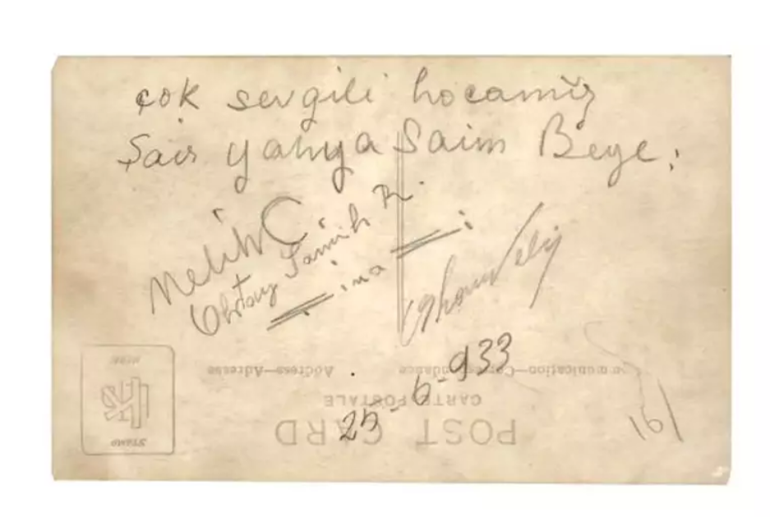 çok sevgili hocamız
Şair yahya Saim Beye;
Melih C
Oktay
Orhan Veli
25-6-933
Communication—Correspondance
Address—Adresse
CARTE POSTALE
POST CARD
STAMP
HERE
16/